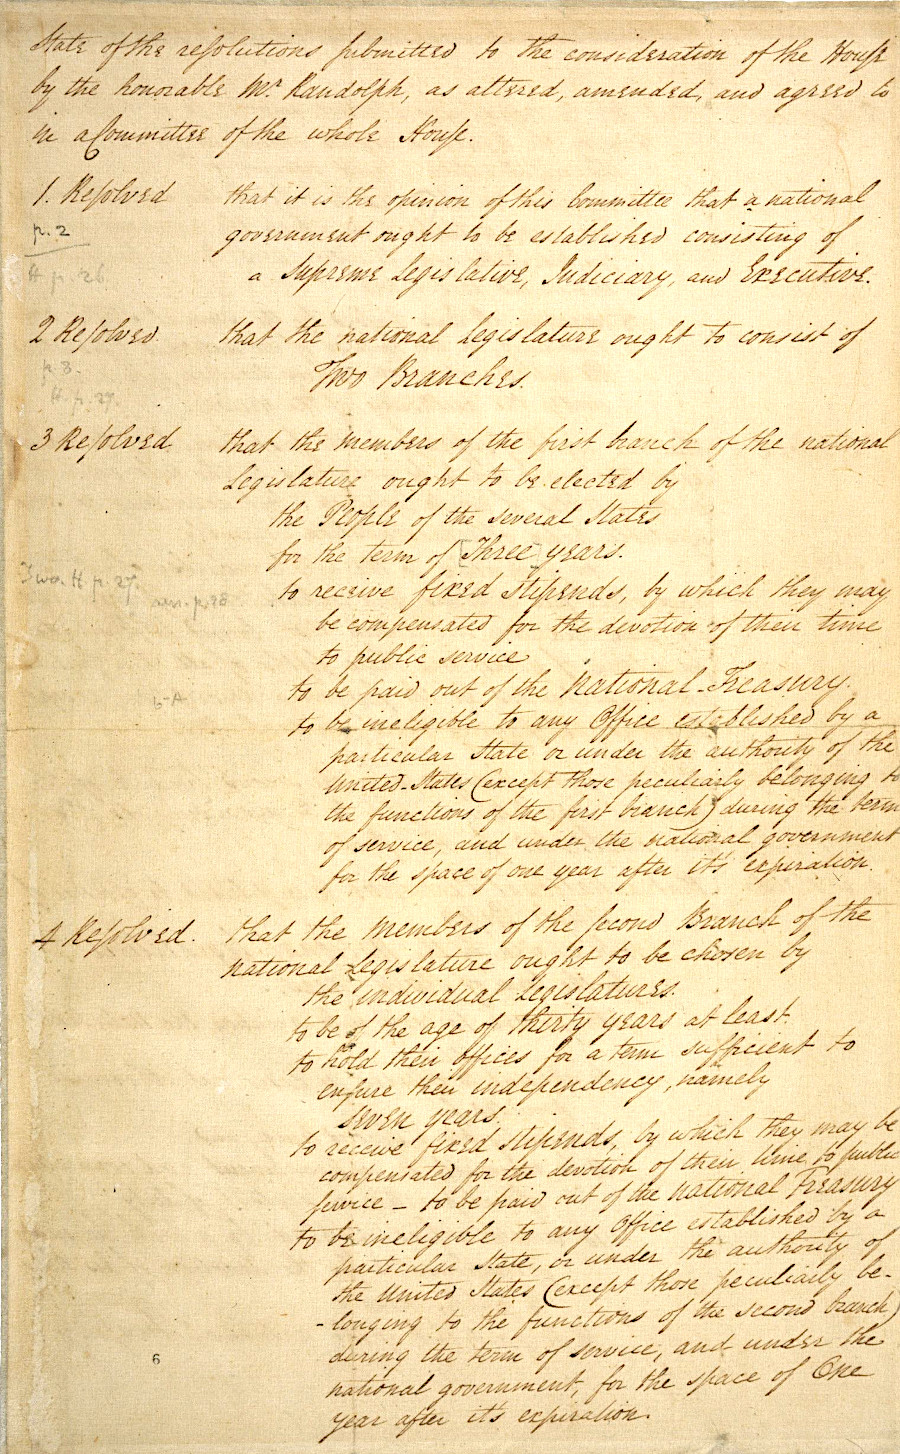 State of the resolutions submitted to the consideration of the House
by the honorable Mr. Randolph, as altered, amended, and agreed to
in a Committee of the whole House.
1. Resolved that it is the opinion of this Committee that a national
p. 2 government ought to be established consisting of
H p. 26 a Supreme Legislative, Judiciary, and Executive.
2 Resolved. that the national Legislature ought to consist of
p. 3. Two Branches.
H. p. 27.
3 Resolved that the members of the first branch of the national
Legislature ought to be elected by
the People of the several States
for the term of [Three] years.
Two. H p. 27. to receive fixed stipends, by which they may
p. 28 be compensated for the devotion of their time
to public service
to be paid out of the National-Treasury.
to be ineligible to any Office established by a
particular State or under the authority of the
United-States (except those peculiarly belonging to
the functions of the first branch) during the term
of service, and under the national government
for the space of one year after it's expiration.
4 Resolved. that the members of the second Branch of the
national Legislature ought to be chosen by
the individual Legislatures.
to be of the age of thirty years at least.
to hold their offices for a term sufficient to
ensure their independency, namely
seven years.
to receive fixed stipends, by which they may be
compensated for the devotion of their time to public
service - to be paid out of the National Treasury
to be ineligible to any Office established by a
particular State, or under the authority of
the United States (except those peculiarly be-
-longing to the functions of the second branch)
during the term of service, and under the
6
national government, for the space of One
year after it's expiration.